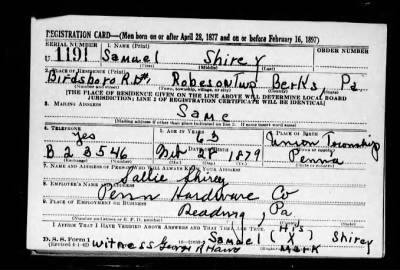 REGISTRATION CARD—(Men born on or after April 28, 1877 and on or before February 16, 1897)
SERIAL NUMBER 1. NAME (Print) ORDER NUMBER
U 1191 Samuel Shirey
(First) (Middle) (Last)
2. PLACE OF RESIDENCE (Print)
Birdsboro R.D. Robeson Twp Berks Pa
(Number and street) (Town, township, village, or city) (County) (State)
[THE PLACE OF RESIDENCE GIVEN ON THE LINE ABOVE WILL DETERMINE LOCAL BOARD
JURISDICTION; LINE 2 OF REGISTRATION CERTIFICATE WILL BE IDENTICAL]
3. MAILING ADDRESS
Same
[Mailing address if other than place indicated on line 2. If same insert word same]
4. TELEPHONE 5. AGE IN YEARS 6. PLACE OF BIRTH
yes 63 Union Township
DATE OF BIRTH (Town or county)
B 2 3546 28 1879 Penna
(Exchange) (Number) (Mo.) (Day) (Yr.) (State or country)
7. NAME AND ADDRESS OF PERSON WHO WILL ALWAYS KNOW YOUR ADDRESS
Sallie Shirey
8. EMPLOYER'S NAME AND ADDRESS
Penn Hardware Co
9. PLACE OF EMPLOYMENT OR BUSINESS
Reading, Pa
(Number and street or R. F. D. number) (Town) (County) (State)
I AFFIRM THAT I HAVE VERIFIED ABOVE ANSWERS AND THAT THEY ARE TRUE.
His
D. S. S. Form 1 Samuel (X) Shirey
(Revised 4-1-42) Witness George mark